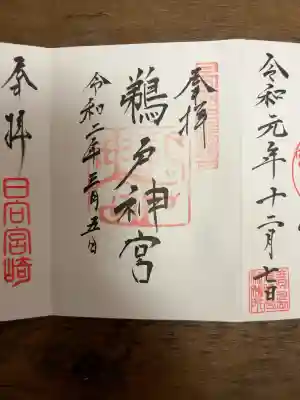 令和元年十二月七日
奉拝
鵜戸神宮
令和二年三月五日
奉拝
宮崎